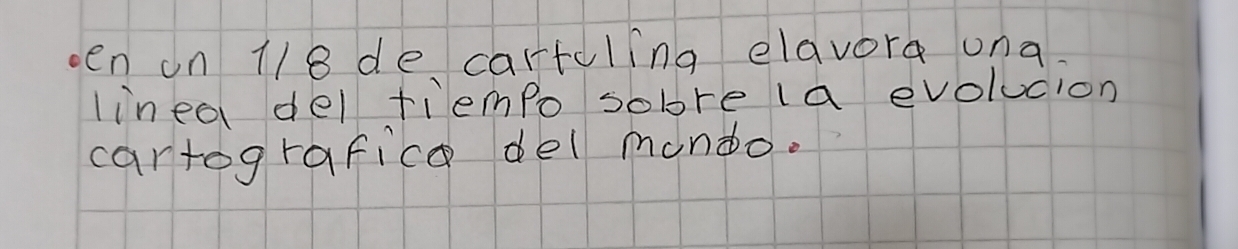 .en un 1/8 de cartulina elavora una
linea del tiempo sobre la evolucion
cartografica del mundo.